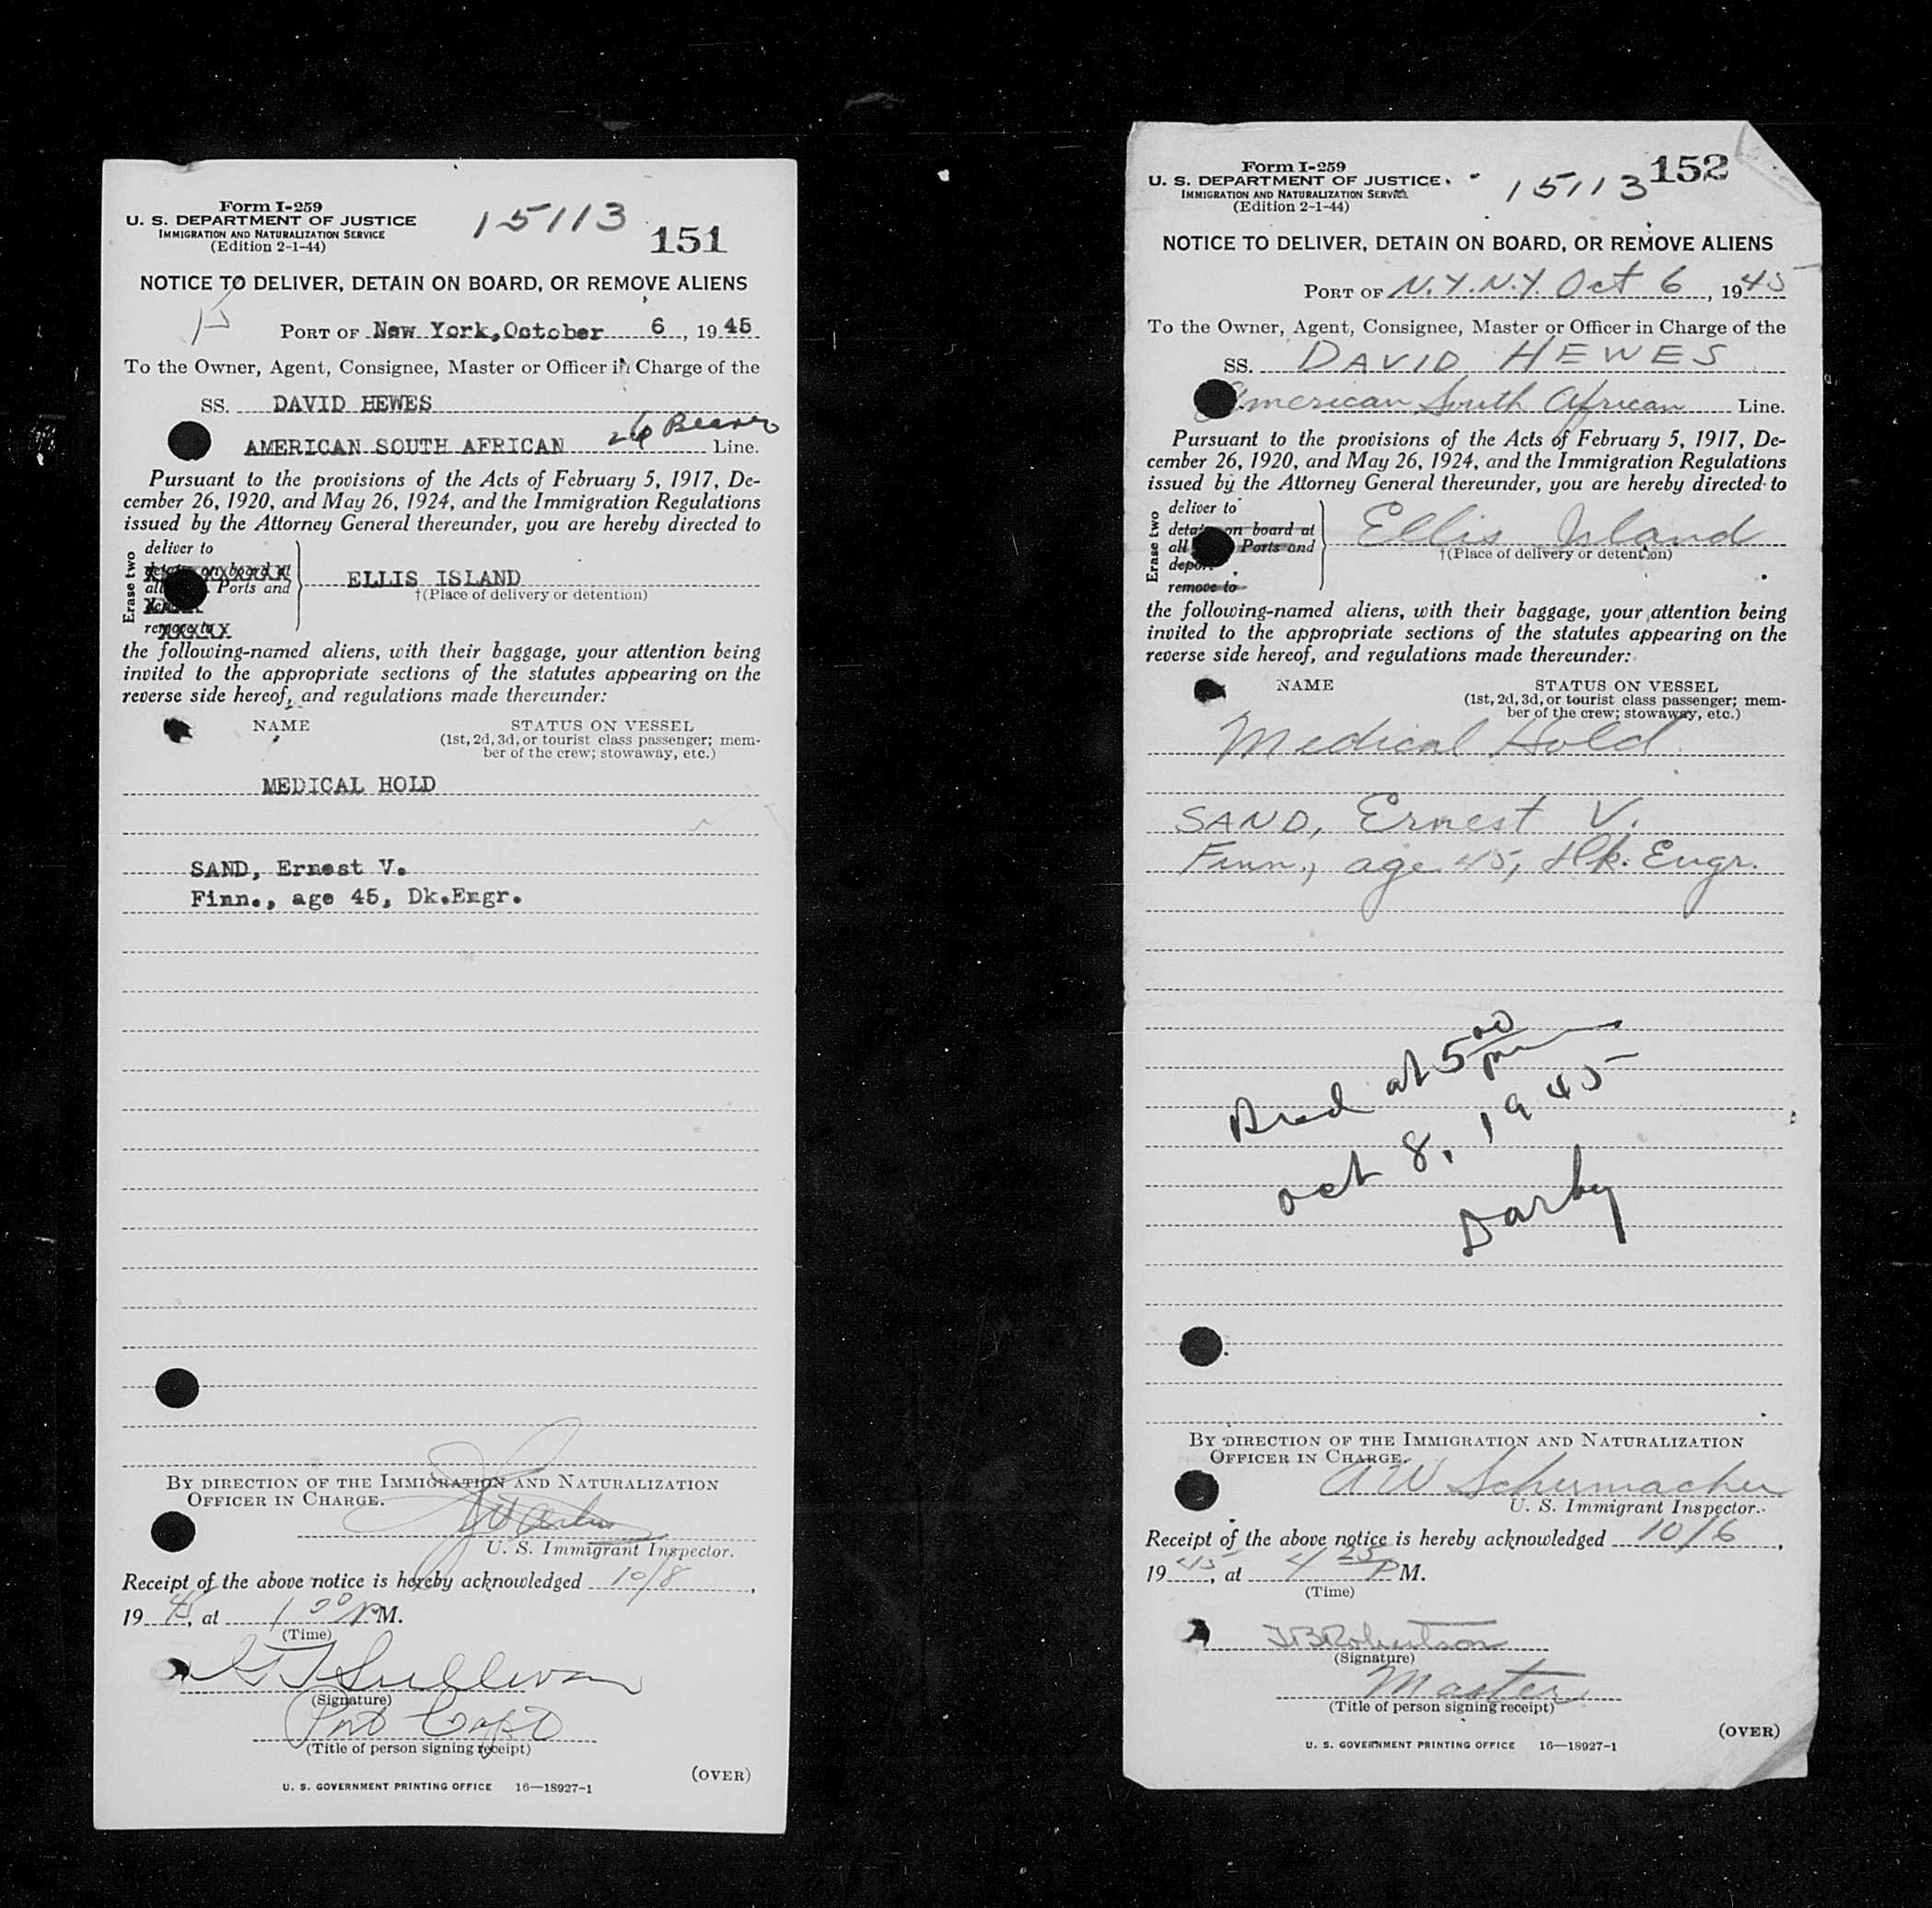 Form I-259
U. S. DEPARTMENT OF JUSTICE
IMMIGRATION AND NATURALIZATION SERVICE
(Edition 2-1-44)
15113
151
NOTICE TO DELIVER, DETAIN ON BOARD, OR REMOVE ALIENS
15
PORT OF New York, October 6, 1945
To the Owner, Agent, Consignee, Master or Officer in Charge of the
SS. DAVID HEWES
26 Beaver
AMERICAN SOUTH AFRICAN Line.
Pursuant to the provisions of the Acts of February 5, 1917, De-
cember 26, 1920, and May 26, 1924, and the Immigration Regulations
issued by the Attorney General thereunder, you are hereby directed to
Erase two
deliver to
detain on board at
all Ports and
remove to
ELLIS ISLAND
†(Place of delivery or detention)
the following-named aliens, with their baggage, your attention being
invited to the appropriate sections of the statutes appearing on the
reverse side hereof, and regulations made thereunder:
NAME STATUS ON VESSEL
(1st, 2d, 3d, or tourist class passenger; mem-
ber of the crew; stowaway, etc.)
MEDICAL HOLD
SAND, Ernest V.
Finn., age 45, Dk.Engr.
BY DIRECTION OF THE IMMIGRATION AND NATURALIZATION
OFFICER IN CHARGE.
U. S. Immigrant Inspector.
Receipt of the above notice is hereby acknowledged 10/8,
1945, at 1 00 P M.
(Time)
Sullivan
(Signature)
Port Capt
(Title of person signing receipt)
(OVER)
U. S. GOVERNMENT PRINTING OFFICE 16—18927-1
Form I-259
U. S. DEPARTMENT OF JUSTICE
IMMIGRATION AND NATURALIZATION SERVICE
(Edition 2-1-44)
15113
152
NOTICE TO DELIVER, DETAIN ON BOARD, OR REMOVE ALIENS
PORT OF N.Y.N.Y. Oct 6, 1945
To the Owner, Agent, Consignee, Master or Officer in Charge of the
SS. DAVID HEWES
American South African Line.
Pursuant to the provisions of the Acts of February 5, 1917, De-
cember 26, 1920, and May 26, 1924, and the Immigration Regulations
issued by the Attorney General thereunder, you are hereby directed to
Erase two
deliver to
detain on board at
all Ports and
deport
remove to
Ellis Island
†(Place of delivery or detention)
the following-named aliens, with their baggage, your attention being
invited to the appropriate sections of the statutes appearing on the
reverse side hereof, and regulations made thereunder:
NAME STATUS ON VESSEL
(1st, 2d, 3d, or tourist class passenger; mem-
ber of the crew; stowaway, etc.)
Medical Hold
SAND, Ernest V.
Finn., age 45, Dk. Engr.
at 5 00 pm
Oct 8, 1945
Darby
BY DIRECTION OF THE IMMIGRATION AND NATURALIZATION
OFFICER IN CHARGE.
AW Schumacher
U. S. Immigrant Inspector.
Receipt of the above notice is hereby acknowledged 10/6,
1945, at 4 25 P M.
(Time)
JB Robertson
(Signature)
Master
(Title of person signing receipt)
(OVER)
U. S. GOVERNMENT PRINTING OFFICE 16—18927-1